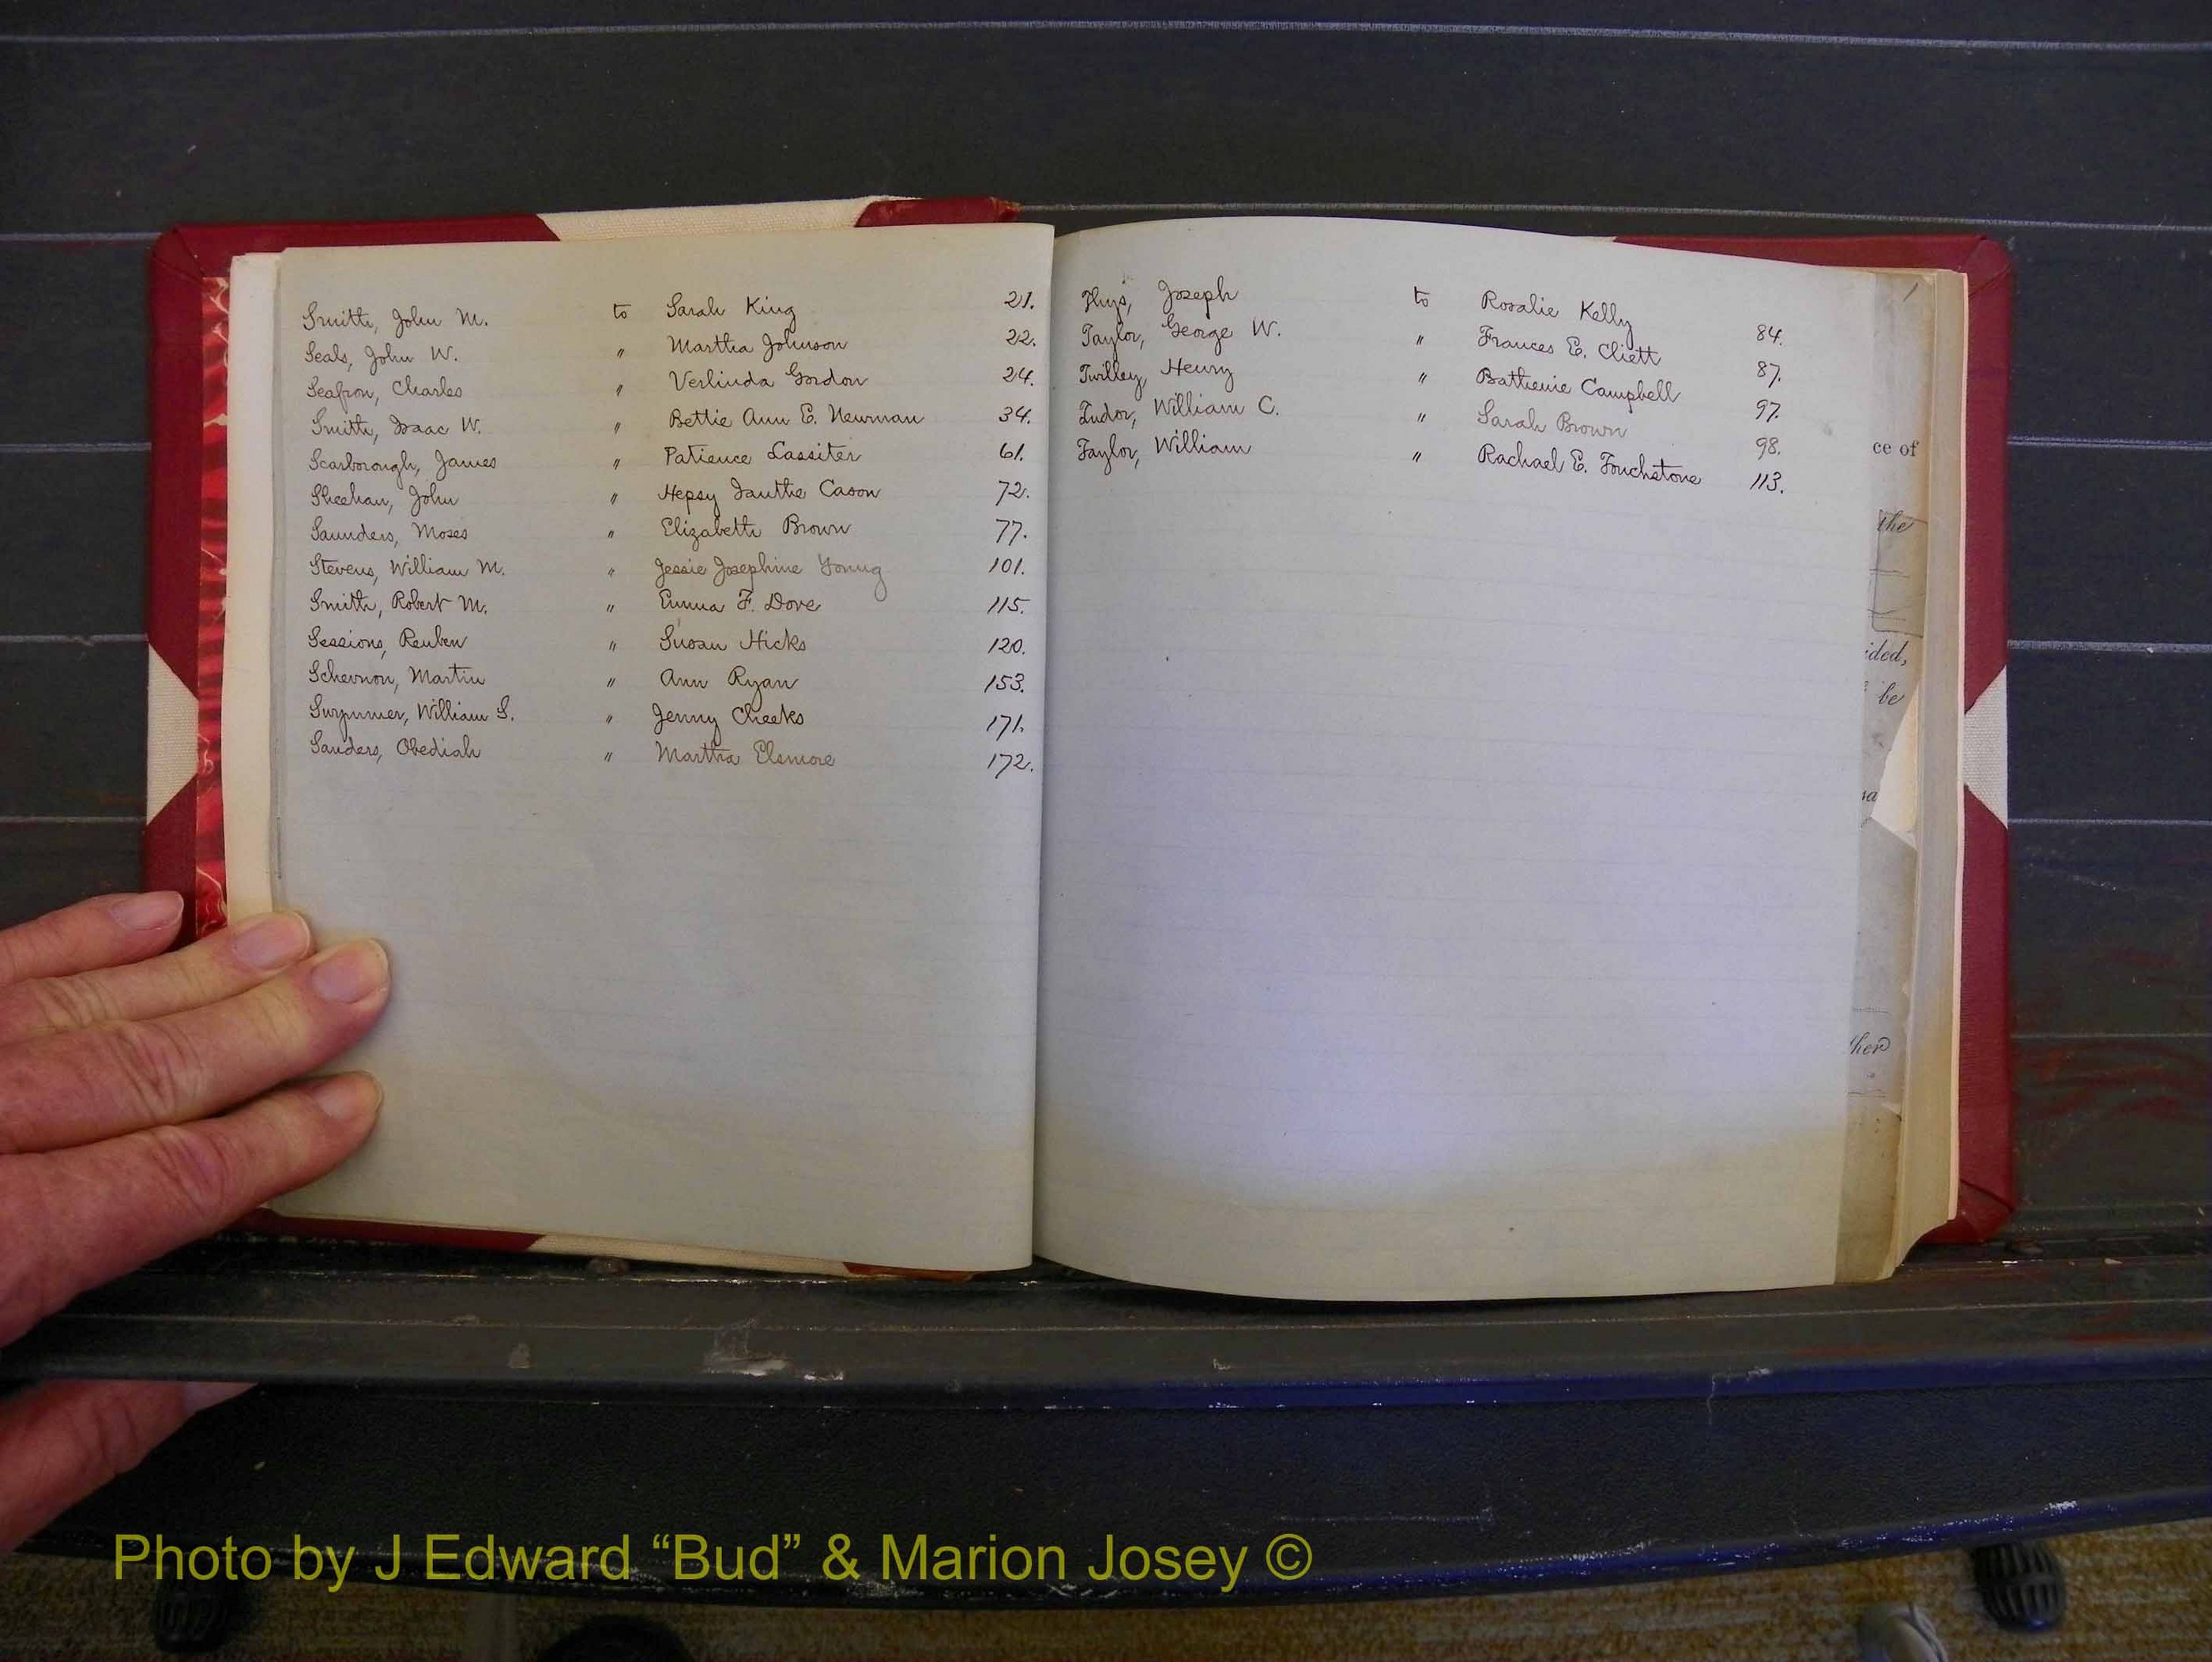 Smith, John M. to Sarah King 21.
Seals, John W. " Martha Johnson 22.
Seafron, Charles " Verlinda Gordon 24.
Smith, Isaac W. " Bettie Ann E. Newman 34.
Scarborough, James " Patience Lassiter 61.
Sheehan, John " Hepsy Ianthe Cason 72.
Saunders, Moses " Elizabeth Brown 77.
Stevens, William M. " Jessie Josephine Young 101.
Smith, Robert M. " Emma F. Dove 115.
Sessions, Reuben " Susan Hicks 120.
Schevnon, Martin " Ann Ryan 153.
William S. " Jenny Cheeks 171.
Sanders, Obediah " Martha Elsmore 172.
Thys, Joseph to Rosalie Kelly 84.
Taylor, George W. " Frances E. Cliett 87.
Twilley, Henry " Bathenie Campbell 97.
Tudor, William C. " Sarah Brown 98.
Taylor, William " Rachael E. Touchstone 113.
1
ce of
the
ided,
be
ther
Photo by J Edward “Bud” & Marion Josey ©